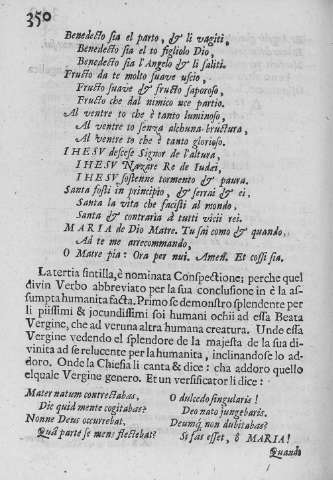 350
Benedecto sia el parto, & li vagiti,
Benedecto sia el to figliolo Dio,
Benedecto sia l'Angelo & li saliti.
Fructo da te molto suave uscio,
Fructo suave & fructo saporoso,
Fructo che dal nimico uce partio.
Al ventre to che è tanto luminoso,
Al ventre to senza alchuna bructura,
Al ventre to che è tanto glorioso.
IHESV descese Signor de l'altura,
IHESV Nazare Re de Iudei,
IHESV sostenne tormento & paura.
Santa fosti in principio, & serrai & ei,
Santa la vita che facisti al mondo,
Santa & contraria à tutti vicii rei.
MARIA de Dio Matre. Tu sai como & quando,
Ad te me arrecommando,
O Matre pia: Ora per nui. Amen. Et cossi sia.
La tertia sintilla, è nominata Conspectione; perche quel
divin Verbo abbreviato per la sua conclusione in è la as-
sumpta humanita facta. Primo se demonstro splendente per
li piissimi & jocundissimi soi humani ochii ad essa Beata
Vergine, che ad veruna altra humana creatura. Unde essa
Vergine vedendo el splendore de la majesta de la sua di-
vinita ad se relucente per la humanita, inclinandose lo ad-
doro. Onde la Chiesia li canta & dice: cha addoro quello
el quale Vergine genero. Et un versificator li dice:
Mater natum contrectabas,
Dic quid mente cogitabas?
Nonne Deus occurrebat,
Quâ parte se mens flectebat?
O dulcedo singularis!
Deo nato jungebaris.
Deumq́ non dubitabas?
Si fas esset, ô MARIA!
Quando